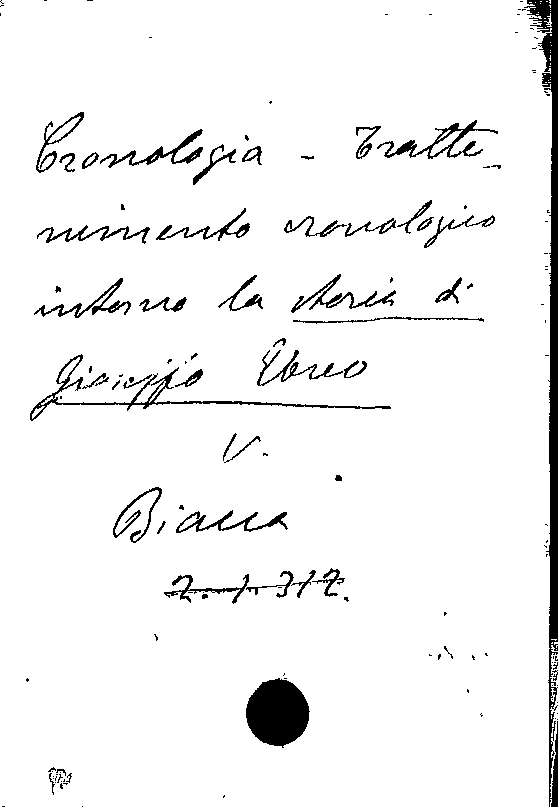 Cronologia - Tratte_
nimento cronologico
intorno la storia di
Giuseppe Ebreo
V.
Biacca
2. 1. 312.